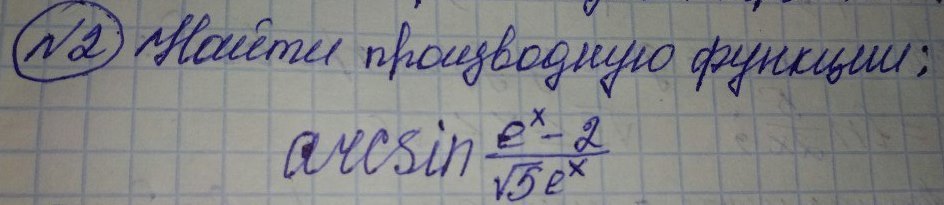 №2 Найти производную функции:
arcsin (e^x - 2)/(√5e^x)